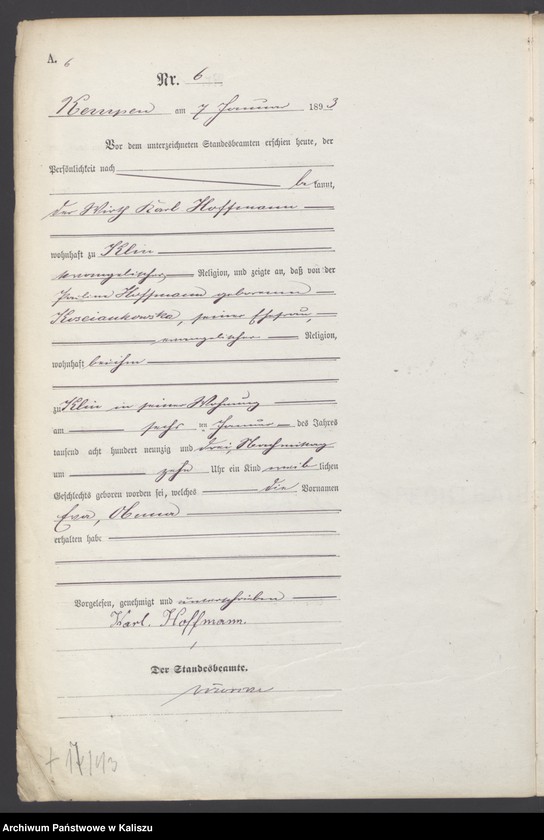 A. 6
Nr. 6
Kempen am 7 Januar 1893
Vor dem unterzeichneten Standesbeamten erschien heute, der
Persönlichkeit nach
bekannt,
der Wirth Karl Hoffmann
wohnhaft zu Klin
evangelischer Religion, und zeigte an, daß von der
Pauline Hoffmann geborenen
Kosciankowska, seiner Ehefrau,
evangelischer Religion,
wohnhaft bei ihm
zu Klin in seiner Wohnung
am sechs ten Januar des Jahres
tausend acht hundert neunzig und drei, Nachmittag
um zehn Uhr ein Kind weiblichen
Geschlechts geboren worden sei, welches die Vornamen
Eva,
erhalten habe
Vorgelesen, genehmigt und unterschrieben
Karl. Hoffmann.
Der Standesbeamte.
Archiwum Państwowe w Kaliszu